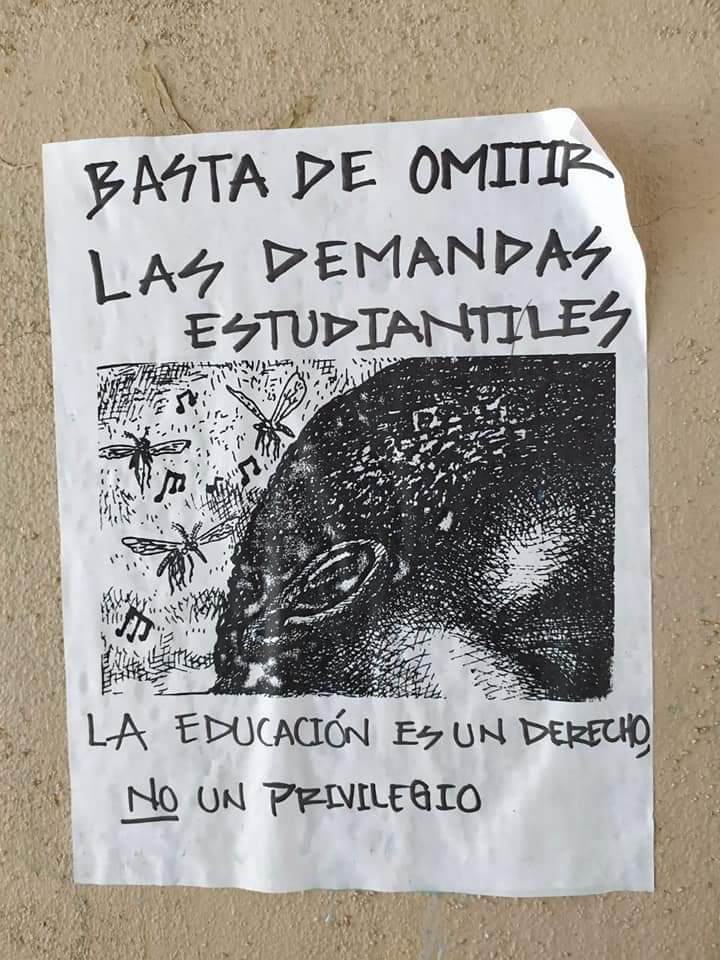 BASTA DE OMITIR
LAS DEMANDAS
ESTUDIANTILES
LA EDUCACIÓN ES UN DERECHO,
NO UN PRIVILEGIO